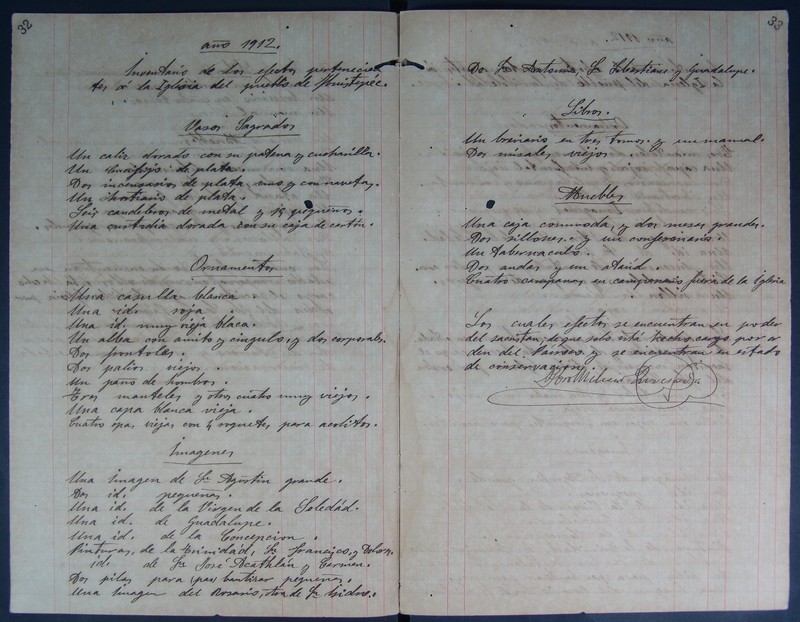 32
año 1912.
Inventario de los efectos pertenecien
tes á la Iglesia del pueblo de
Vasos Sagrados
Un caliz dorado con su patena y cucharilla.
Un crucifijo de plata.
Dos incensarios de plata uno y con naveta.
Un hostiario de plata.
Seis candeleros de metal y 12 pequeños.
Una custodia dorada con su caja de cartón.
Ornamentos
Una casulla blanca
Una id. roja
Una id. muy vieja blaca.
Un alba con amito y cíngulo, y dos corporales.
Dos frontales.
Dos palios viejos.
Un paño de hombros.
Tres manteles y otros cuatro muy viejos.
Una capa blanca vieja.
Cuatro opas viejas con 4 roquetes para acolitos.
Imagenes
Una Imagen de Sn Agustin grande.
Dos id. pequeños.
Una id. de la Virgen de la Soledád.
Una id. de Guadalupe.
Una id. de la Concepcion.
Pinturas, de la Trinidád, Sn Francisco, y Dolores.
id. de Sn José y Carmen.
Dos pilas para bautizar pequeños.
Una Imagen del Rosario, otra de Sn Isidro.
33
De Sn Antonio, Sn Sebastian y Guadalupe.
Libros.
Un breviario en tres tomos y un manual.
Dos misales viejos.
Muebles
Una caja commoda, y dos mesas grandes.
Dos sillones. y un confesionario.
Un tabernaculo.
Dos andas y un ataúd.
Cuatro campanas en campanario fuera de la Iglesia
Los cuales efectos se encuentran en poder
del sacristan; de que solo está hecho cargo por or
den del Párroco y se encuentran en estado
de conservación.